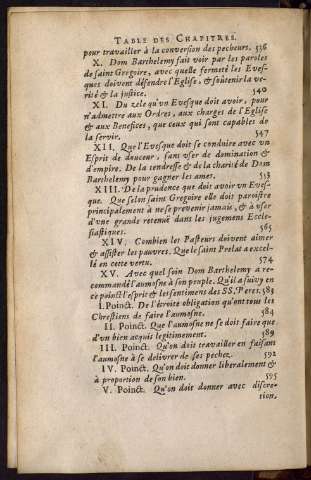 TABLE DES CHAPITRES.
pour travailler à la conversion des pecheurs. 536
X. Dom Barthelemy fait voir par les paroles
de saint Gregoire, avec quelle fermeté les Eves-
ques doivent défendre l'Eglise, & soûtenir la ve-
rité & la justice. 540
XI. Du zele qu'vn Evesque doit avoir, pour
n'admettre aux Ordres, aux charges de l'Eglise
& aux Benefices, que ceux qui sont capables de
la servir. 547
XII. Que l'Evesque doit se conduire avec un
Esprit de douceur, sans vser de domination &
d'empire. De la tendresse & de la charité de Dom
Barthelemy pour gagner les ames. 553
XIII. De la prudence que doit avoir vn Eves-
que. Que selon saint Gregoire elle doit paroistre
principalement à ne se prevenir jamais, & à vser
d'vne grande retenuë dans les jugemens Eccle-
siastiques. 565
XIV. Combien les Pasteurs doivent aimer
& assister les pauvres. Que le saint Prelat a excel-
lé en cette vertu. 574
XV. Avec quel soin Dom Barthelemy a re-
commandé l'aumosne à son peuple. Qu'il a suivy en
ce poinct l'esprit & les sentimens des SS. Peres. 583
I. Poinct. De l'étroite obligation qu'ont tous les
Chrestiens de faire l'aumosne. 584
II. Poinct. Que l'aumosne ne se doit faire que
d'vn bien acquis legitimement. 589
III. Poinct. Qu'on doit travailler en faisant
l'aumosne à se delivrer de ses pechez. 592
IV. Poinct. Qu'on doit donner liberalement &
à proportion de son bien. 595
V. Poinct. Qu'on doit donner avec discre-
tion,